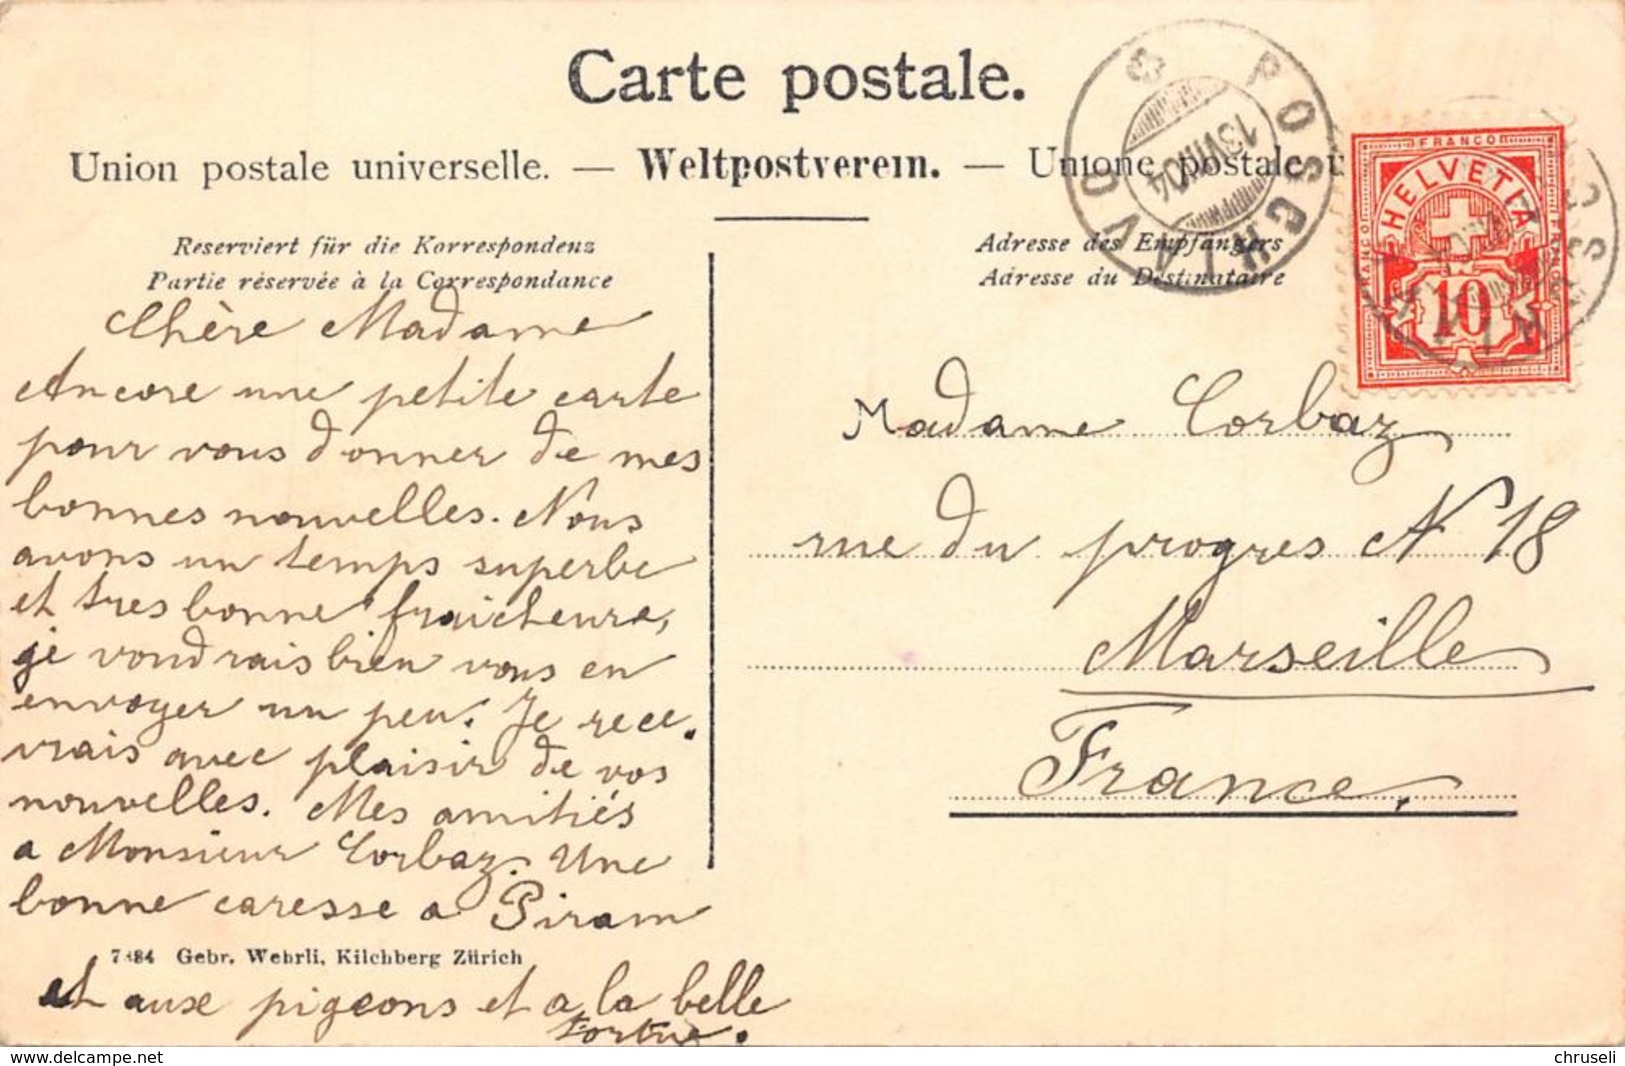 Carte postale.
Union postale universelle. — Weltpostverein. — Unione postale u
Reserviert für die Korrespondenz
Partie réservée à la Correspondance
Adresse des Empfängers
Adresse du Destinataire
POSCHIAVO
13 VIII 04
FRANCO
HELVETIA
FRANCO
10
Chère Madame
Ancore une petite carte
pour vous donner de mes
bonnes nouvelles. Nous
avons un temps superbe
et tres bonne fraicheure,
je voudrais bien vous en
envoyer un peu. Je rece.
vrais avec plaisir de vos
nouvelles. Mes amitiés
a Monsieur Corbaz. Une
bonne caresse a Piram
7484 Gebr. Wehrli, Kilchberg Zürich
et aux pigeons et a la belle
tortue.
Madame Corbaz
rue du progres N 18
Marseille
France.
www.delcampe.net
chruseli